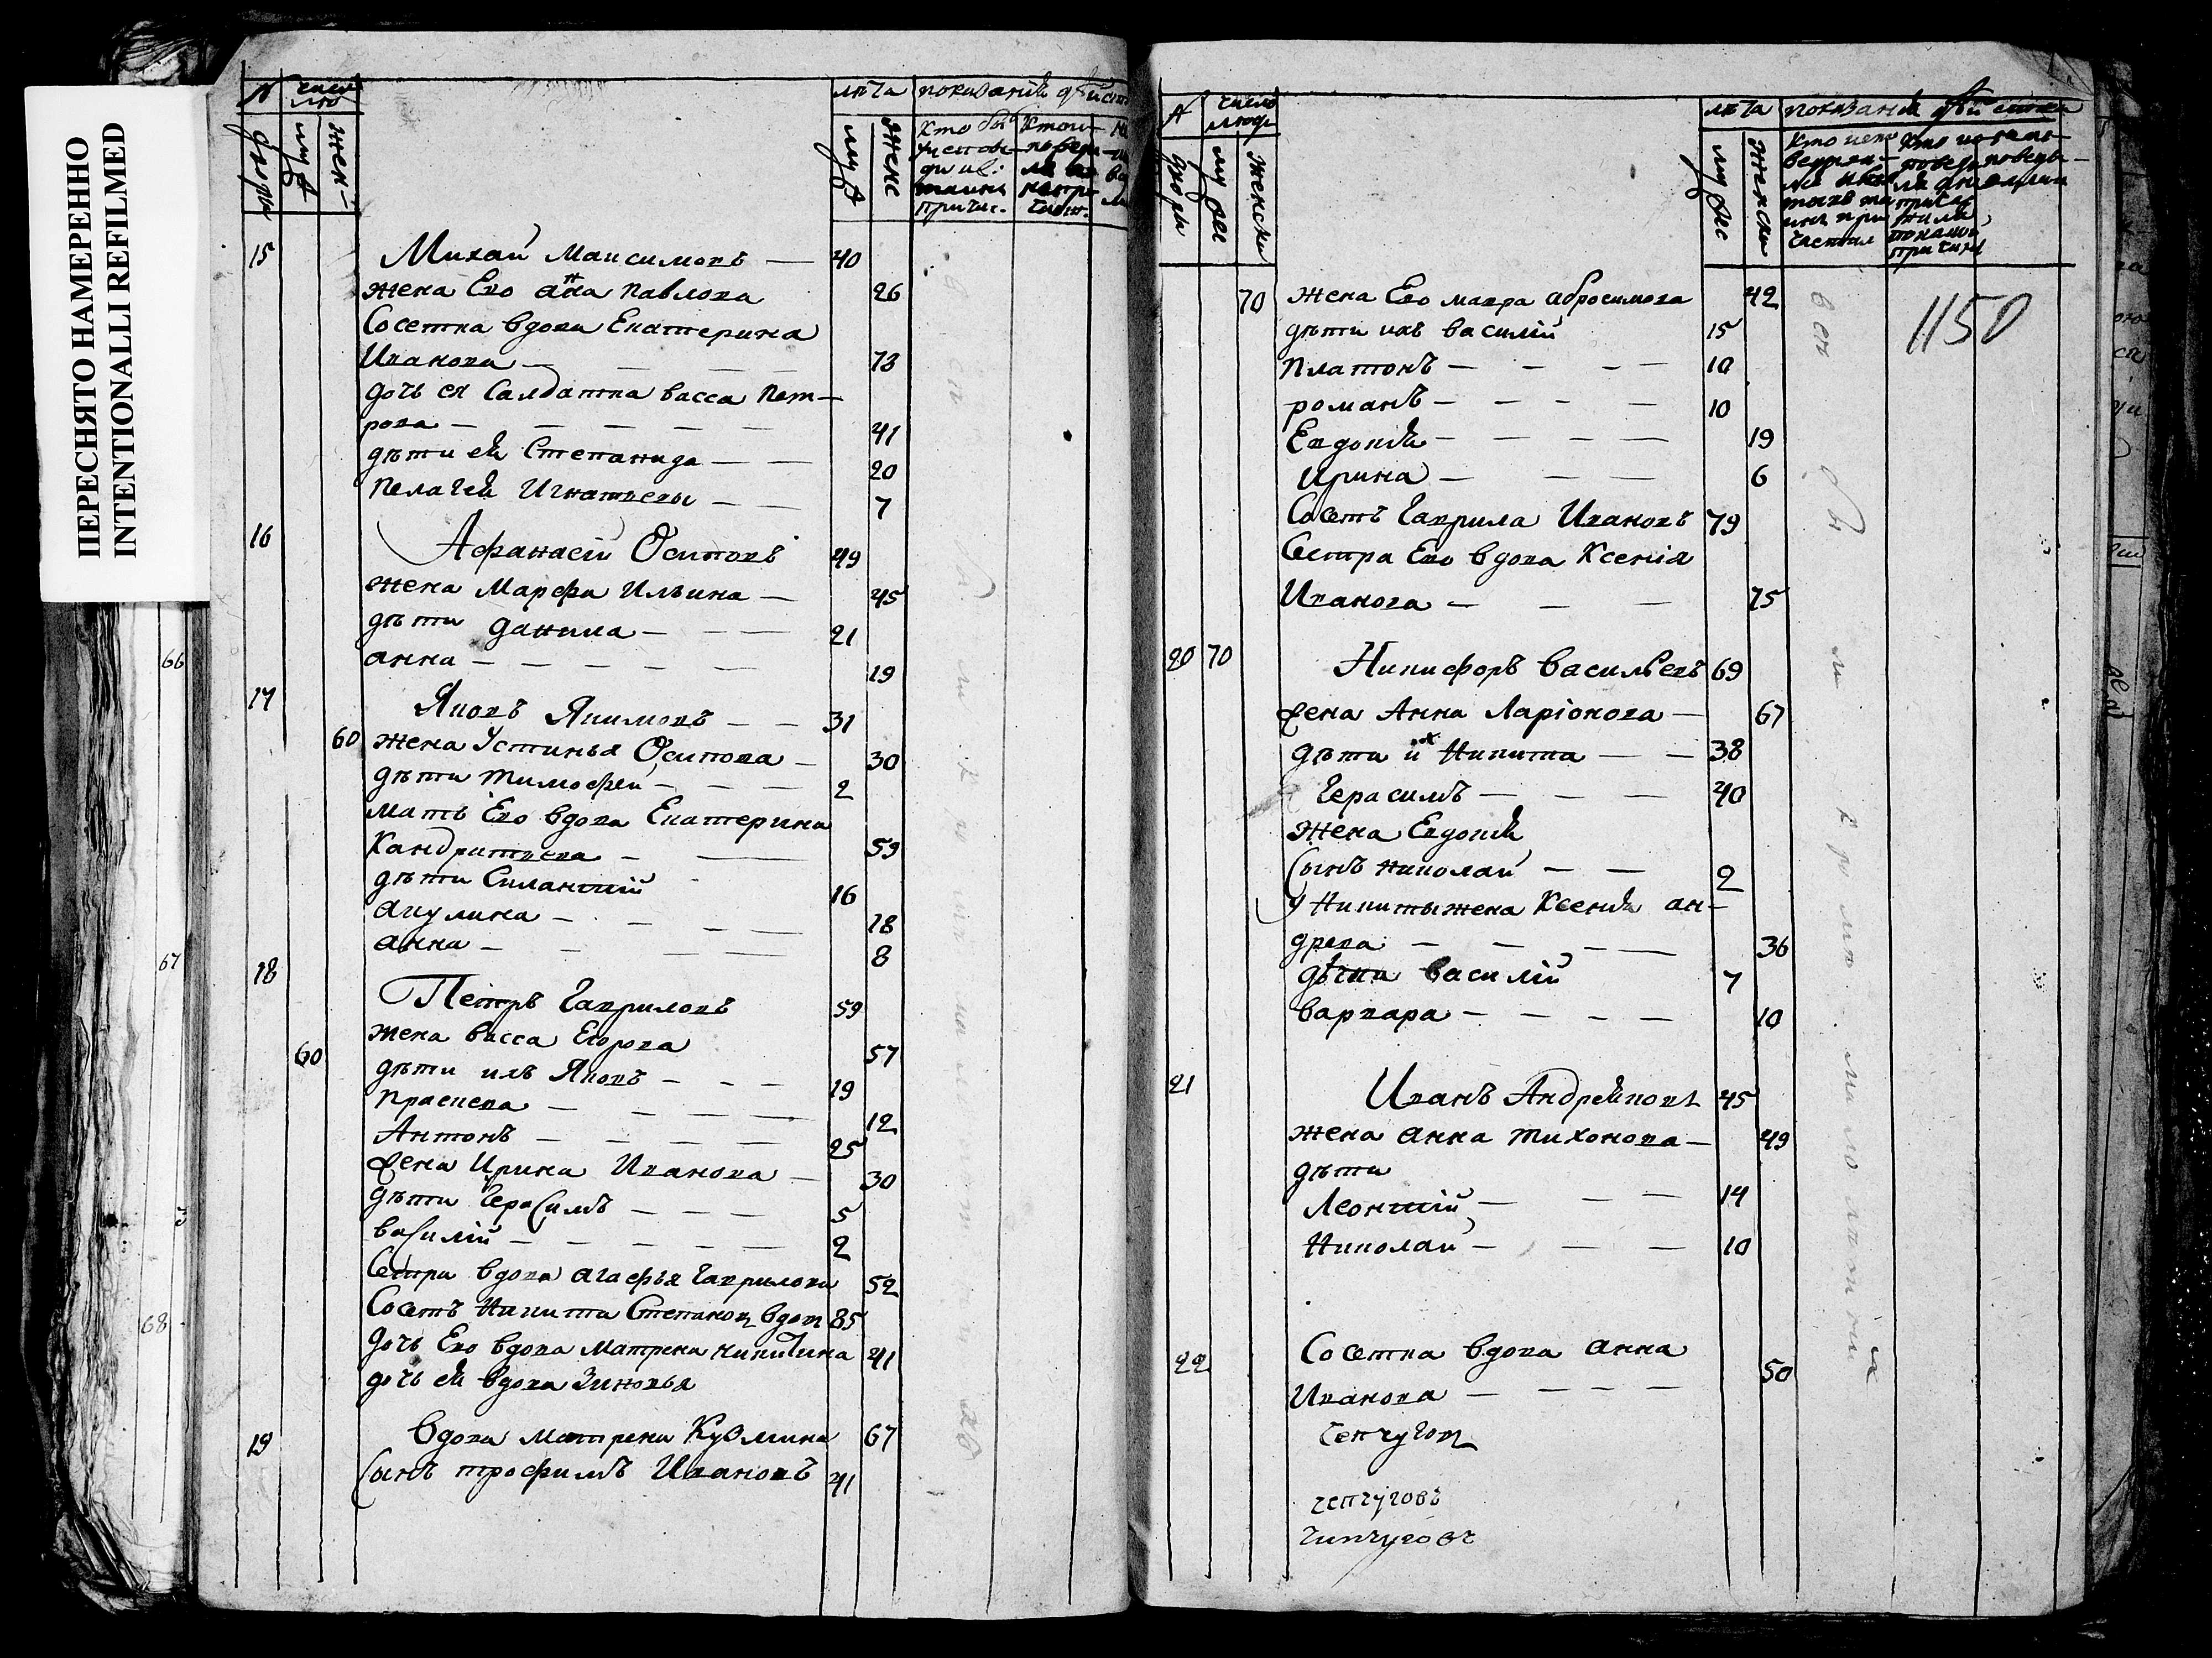 ПЕРЕСНЯТО НАМЕРЕННО
INTENTIONALLI REFILMED
66
67
3
68
N число лю лѣта показанїя дѣйст
дворы муж жен муж женс
15 Михаи Максимовъ — 40
жена Его анна павлова 26
Сосетка вдова Екатерина
Иванова — 73
дочь ея Салдатка васса Пет—
рова — 41
дѣти ея Степанида — 20
пелагея Игнатьевы — 7
16 Афанасїи Осиповъ 49
жена Марфа Ильина — 45
дѣти данила — 21
анна — 19
17 Яковъ Якимовъ — 31
60 жена Устинья Осипова — 30
дѣти тимофеи — 2
мать Его вдова Екатерина
Кандратьева — 59
дѣти Силантїй 16
акулина — 18
анна — 8
18 Петръ Гавриловъ 59
жена васса Егорова 57
60 дѣти ихъ Яковъ — 19
праскева — 12
Антонъ — 25
жена Ирина Иванова — 30
дѣти Герасимъ — 5
василїй — 2
Сестра вдова агафья гаврилова 52
Сосетъ Никита Степановъ вдов 85
дочь Его вдова матрена никитина 41
дочь ея вдова Зиновья
19 вдова матрена Кузмина 67
Сынъ трофимъ Ивановъ 41
число люде лѣта показанїя дѣйства
дворы муже женски мужес женски
70 жена Его мавра абросимова 42
1150
дѣти ихъ василїй 15
платонъ — 10
романъ — 10
Евдокїя — 19
Ирина — 6
Сосетъ Гаврила Ивановъ 79
Сестра Его вдова Ксенїя
Иванова — 75
20 70 Никифоръ васильевъ 69
жена Анна Ларїонова — 67
дѣти их Никита — 38
Герасимъ — 40
жена Евдокїя
Сынъ николаи — 2
у Никиты жена Ксенїя ан—
древа — 36
дѣти василїй 7
варвара — 10
21 Иванъ Андреяновъ 45
жена анна тихонова — 49
дѣти
Леонтїй — 14
николаи — 10
22 Сосетка вдова анна 50
Иванова —
Чепчуговъ
чепчуговъ
чипчуговъ